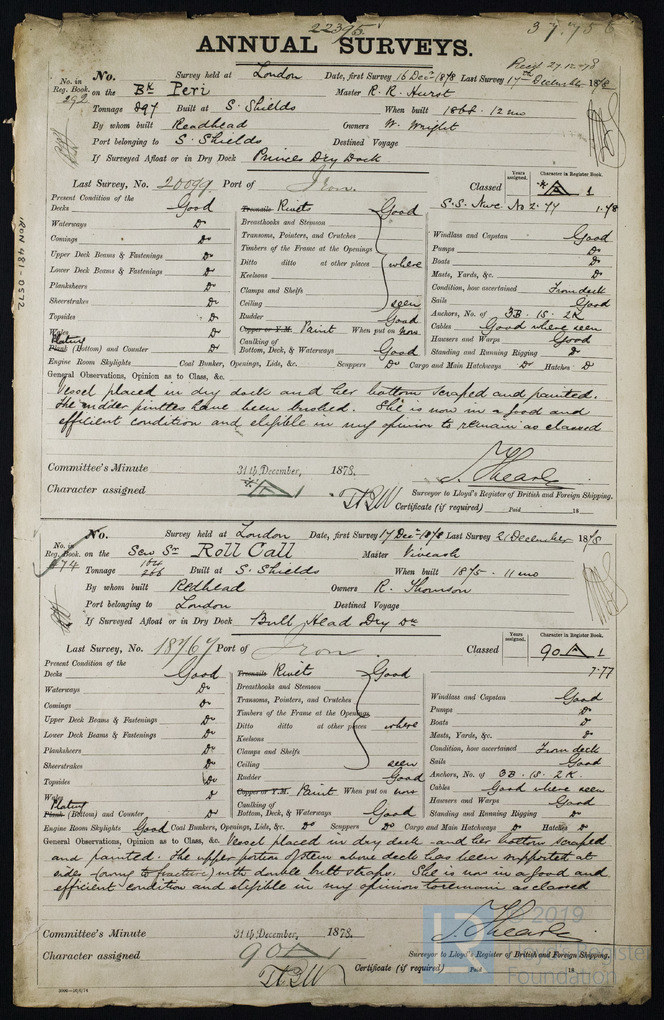 22395.
37,755
ANNUAL SURVEYS.
Recd 27-12-78
No. in Reg. Book. 292
No. Survey held at London Date, first Survey 16 Decr 1878 Last Survey 17th December 1878
on the Bk Peri Master R. R. Hurst
Tonnage 297 Built at S. Shields When built 1866 . 12 mo
By whom built Readhead Owners W. Wright
Port belonging to S. Shields Destined Voyage
If Surveyed Afloat or in Dry Dock Princes Dry Dock
IRON 481-0572
Last Survey, No. 20099 Port of Iron. Classed
Years assigned.
Character in Register Book.
A 1
S.S. Nwc No 2. 77 1.78
Present Condition of the
Decks Good
Waterways Do
Comings Do
Upper Deck Beams & Fastenings Do
Lower Deck Beams & Fastenings Do
Planksheers Do
Sheerstrakes Do
Topsides Do
Wales Do
Plating
Plank (Bottom) and Counter Do
Treenails Rivets Good
Breasthooks and Stemson
Transoms, Pointers, and Crutches
Timbers of the Frame at the Openings
Ditto ditto at other places where
Keelsons
Clamps and Shelfs
Ceiling seen
Rudder Good
Copper or Y.M. Paint When put on now
Caulking of
Bottom, Deck, & Waterways Good
Windlass and Capstan Good
Pumps Do
Boats Do
Masts, Yards, &c. Do
Condition, how ascertained From deck
Sails Good
Anchors, No. of 3B . 1S . 2K
Cables Good where seen
Hawsers and Warps Good
Standing and Running Rigging Do
Engine Room Skylights Coal Bunker, Openings, Lids, &c. Scuppers Do Cargo and Main Hatchways Do Hatches Do
General Observations, Opinion as to Class, &c.
Vessel placed in dry dock and her bottom scraped and painted.
The rudder pintles have been bushed. She is now in a good and
efficient condition and eligible in my opinion to remain as classed
Committee's Minute 31th December, 1878.
Character assigned A
Surveyor to Lloyd's Register of British and Foreign Shipping.
Certificate (if required) Paid 18
No. in Reg. Book. 474
No. Survey held at London Date, first Survey 17 Decr 1878 Last Survey 21 December 1878
on the Sew Sr Roll Call Master Viveash
Tonnage Built at S. Shields When built 1875 . 11 mo
By whom built Redhead Owners R. Thomson
Port belonging to London Destined Voyage
If Surveyed Afloat or in Dry Dock Bull Head Dry Dk
Last Survey, No. 18767 Port of Iron. Classed
Years assigned.
Character in Register Book.
90 A 1
7.77
Present Condition of the
Decks Good
Waterways Do
Comings Do
Upper Deck Beams & Fastenings Do
Lower Deck Beams & Fastenings Do
Planksheers Do
Sheerstrakes Do
Topsides Do
Wales Do
Plating
Plank (Bottom) and Counter Do
Treenails Rivets Good
Breasthooks and Stemson
Transoms, Pointers, and Crutches
Timbers of the Frame at the Openings
Ditto ditto at other places where
Keelsons
Clamps and Shelfs
Ceiling seen
Rudder Good
Copper or Y.M. Paint When put on now
Caulking of
Bottom, Deck, & Waterways Good
Windlass and Capstan Good
Pumps Do
Boats Do
Masts, Yards, &c. Do
Condition, how ascertained From deck
Sails Good
Anchors, No. of 3B . 1S . 2K.
Cables Good where seen
Hawsers and Warps Good
Standing and Running Rigging Do
Engine Room Skylights Good Coal Bunkers, Openings, Lids, &c. Do Scuppers Do Cargo and Main Hatchways Do Hatches Do
General Observations, Opinion as to Class, &c. Vessel placed in dry dock and her bottom scraped
and painted. The upper portion of stem above deck has been supported at
sides (owing to fracture) with double butt straps. She is now in a good and
efficient condition and eligible in my opinion to remain as classed
Committee's Minute 31th December, 1878.
Character assigned 90 A
Surveyor to Lloyd's Register of British and Foreign Shipping.
Certificate (if required) Paid 18
© 2019
Lloyd's Register
Foundation